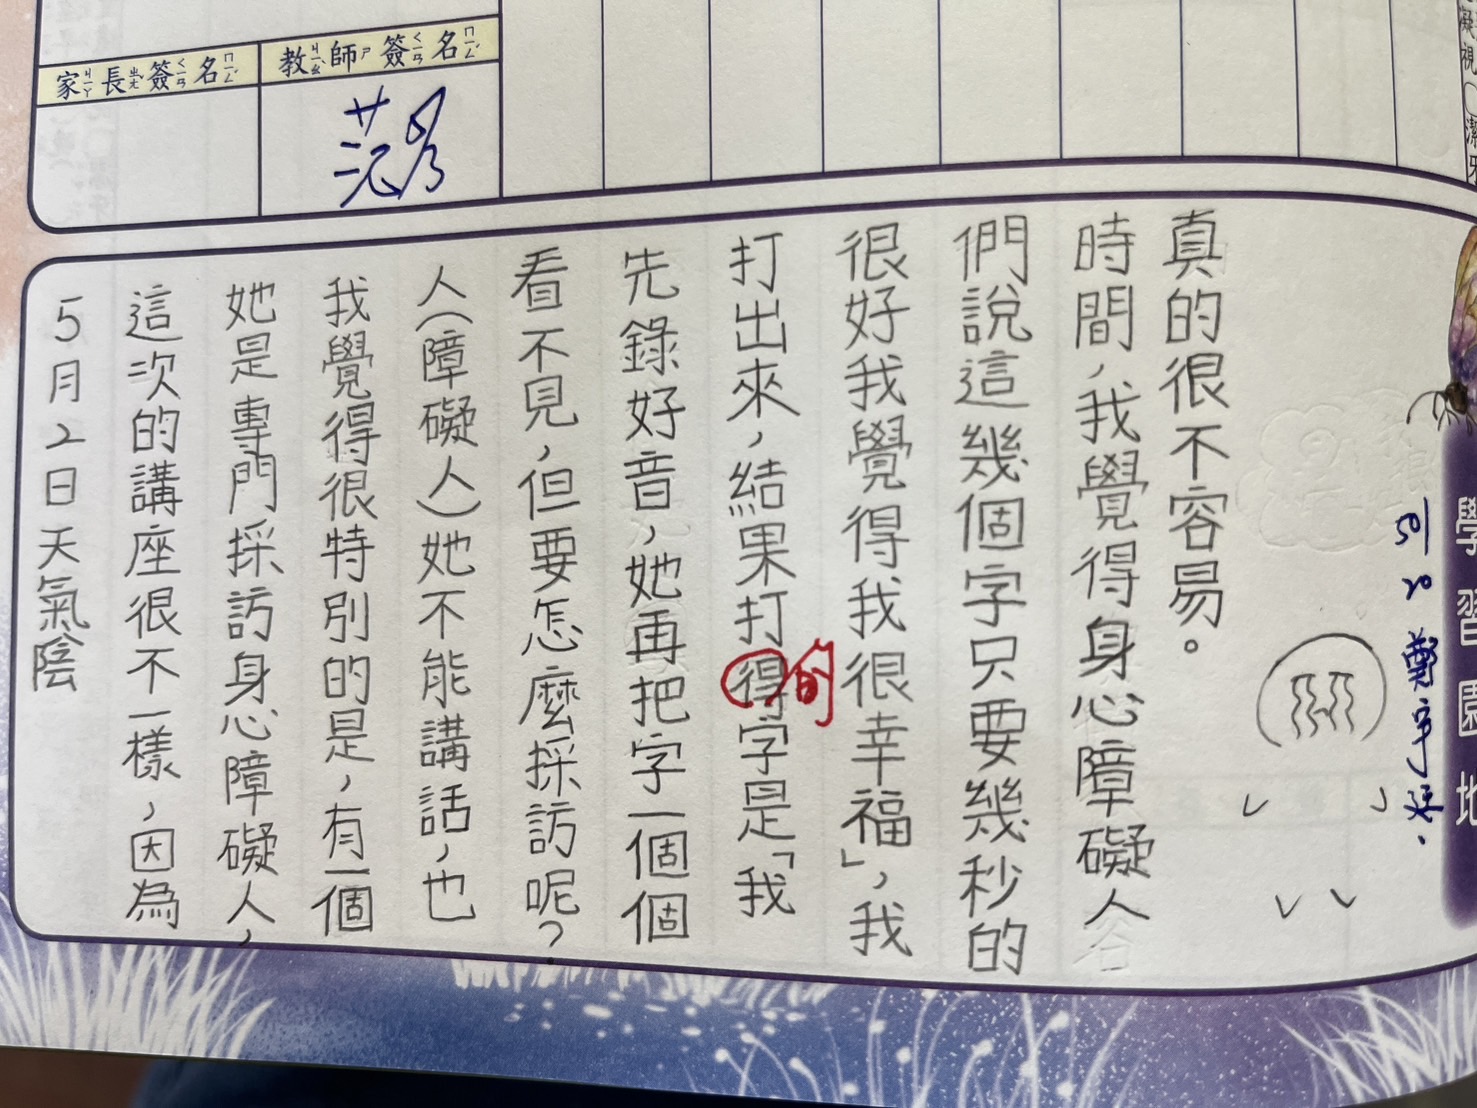 家長簽名
ㄐㄧㄚ ㄓㄤˇ ㄑㄧㄢ ㄇㄧㄥˊ
教師簽名
ㄐㄧㄠˋ ㄕ ㄑㄧㄢ ㄇㄧㄥˊ
5月2日天氣陰
這次的講座很不一樣,因為
她是專門採訪身心障礙人,
我覺得很特別的是,有一個
人(障礙人)她不能講話,也
看不見,但要怎麼採訪呢?
先錄好音,她再把字一個個
打出來,結果打得字是「我
的
很好我覺得我很幸福」,我
們說這幾個字只要幾秒的
時間,我覺得身心障礙人
真的很不容易。
學習園地